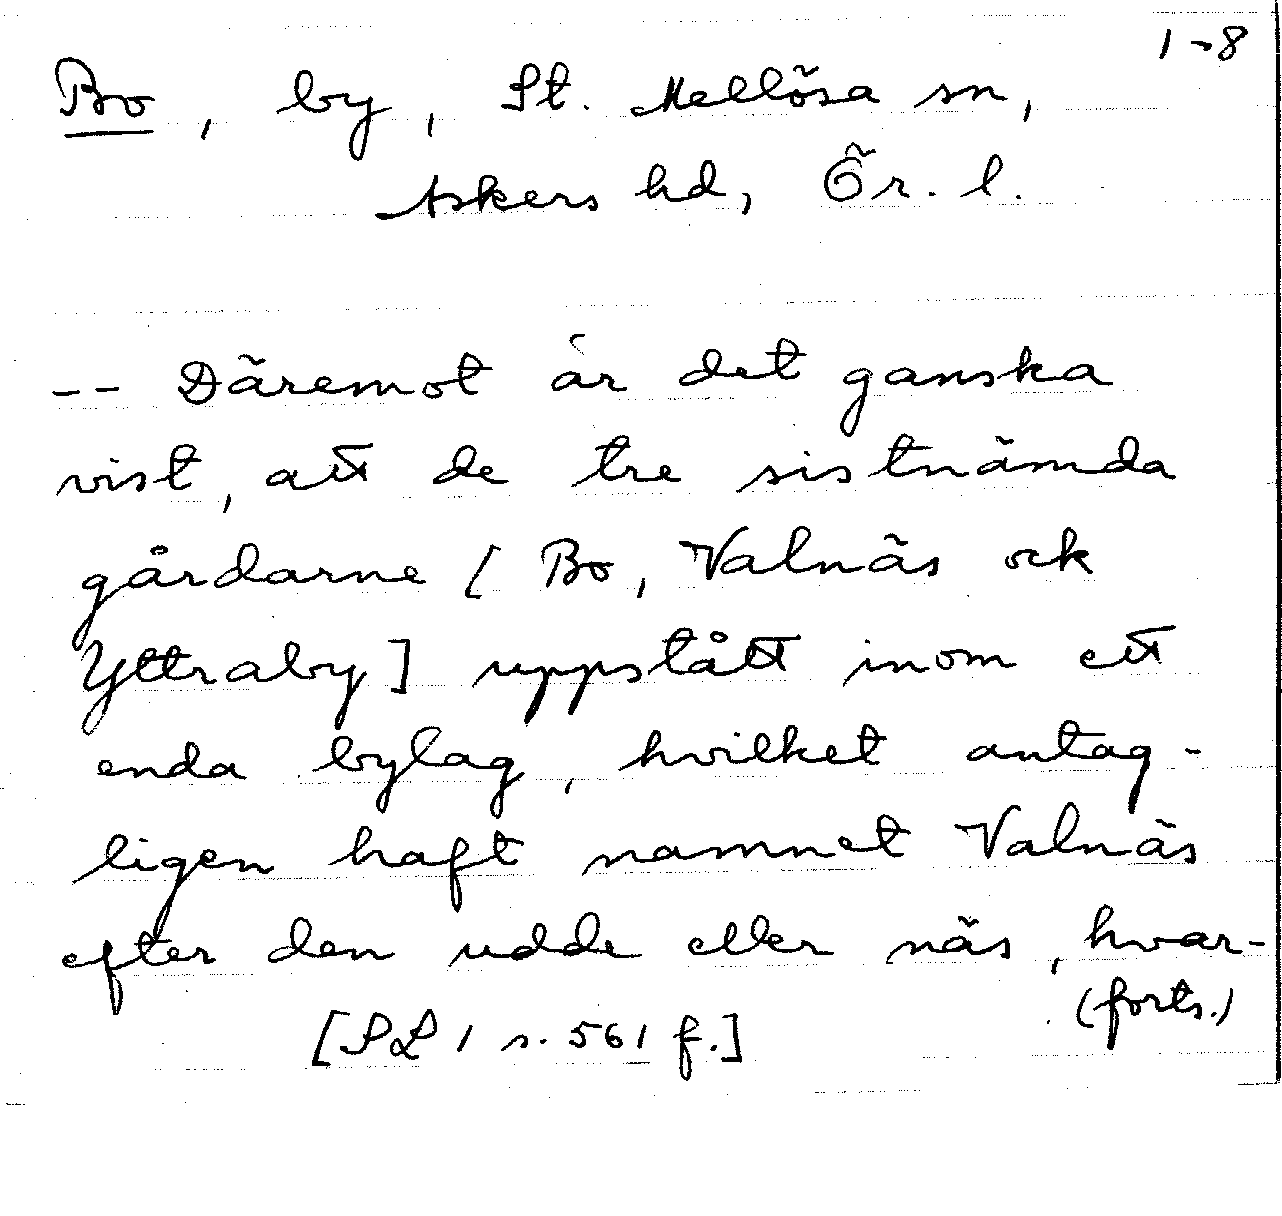 1-8
Bo, by, St. Mellösa sn,
Askers hd, Ör. l.
-- Däremot är det ganska
vist, att de tre sistnämda
gårdarne [Bo, Valnäs ock
Yttraby] uppstått inom ett
enda bylag, hvilket antag-
ligen haft namnet Valnäs
efter den udde eller näs, hvar-
(forts.)
[SL 1 s. 561 f.]